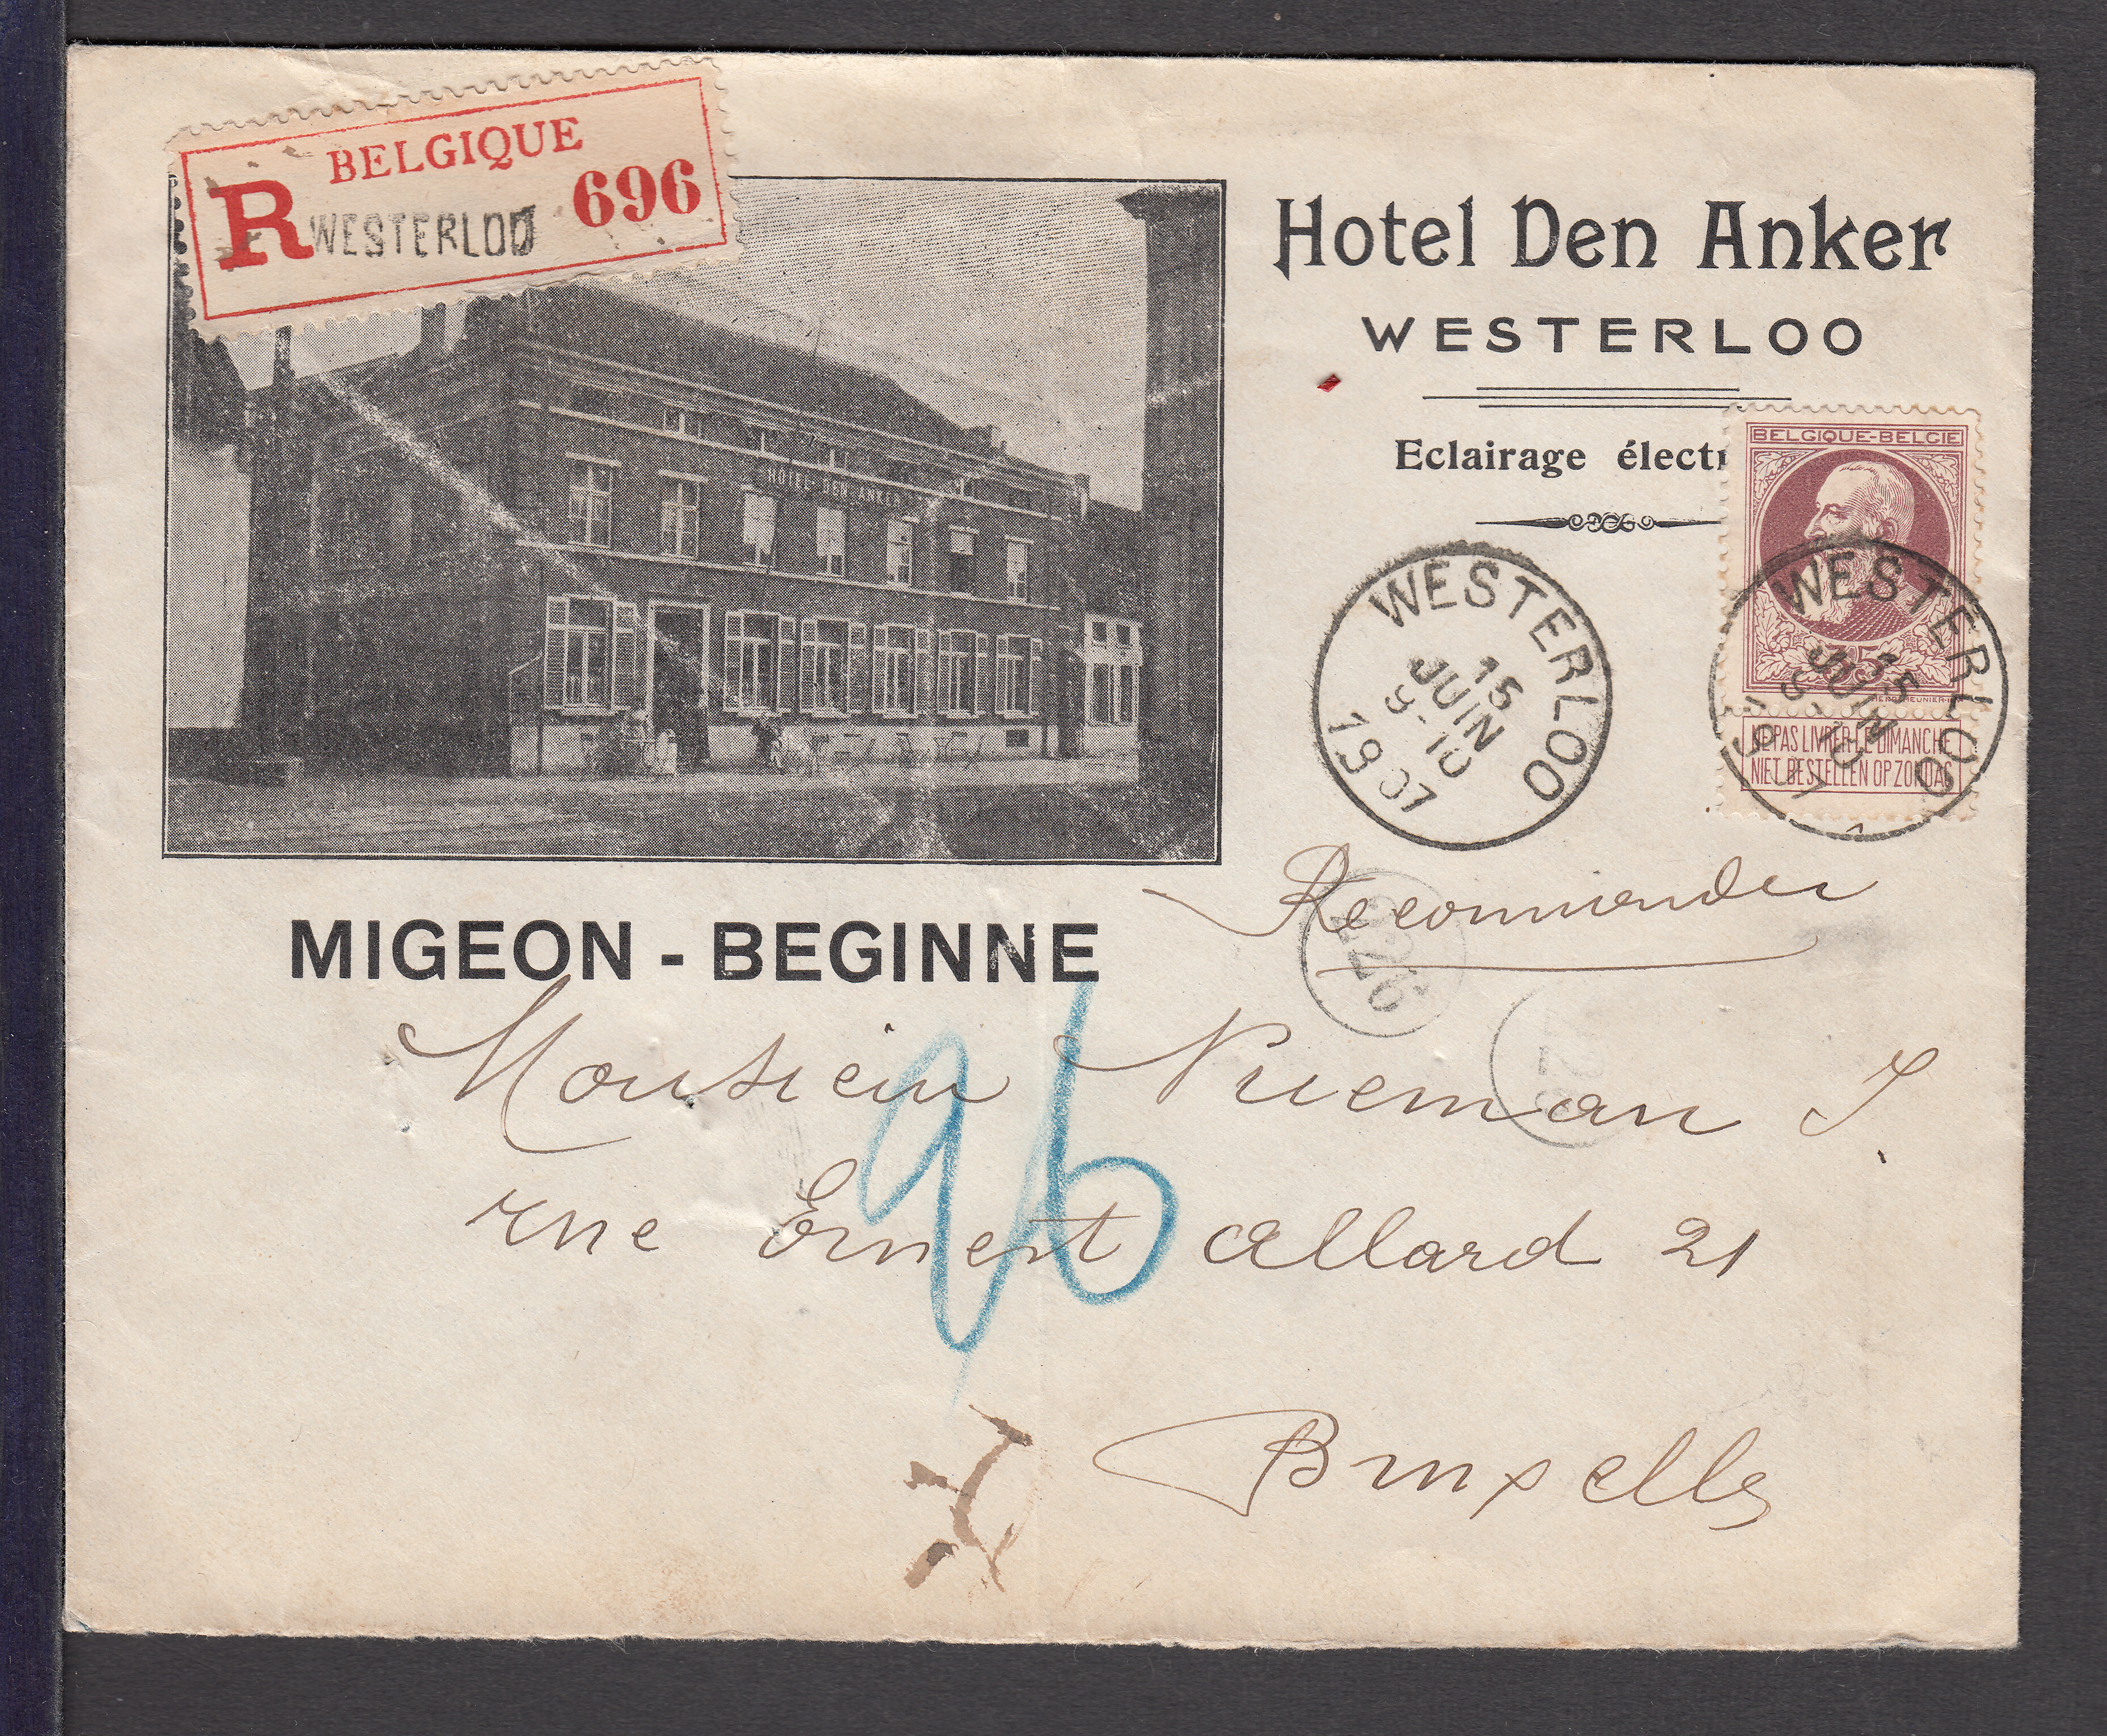 BELGIQUE
R WESTERLOO 696
Hotel Den Anker
WESTERLOO
Eclairage électr
HOTEL DEN ANKER
BELGIQUE-BELGIE
35
NE PAS LIVRER LE DIMANCHE
NIET BESTELLEN OP ZONDAG
WESTERLOO
15
JUIN
1907
WESTERLOO
15
JUIN
1907
MIGEON - BEGINNE
Recommander
Monsieur Nueman J.
rue Ernest Allard 21
96
Bruxelles